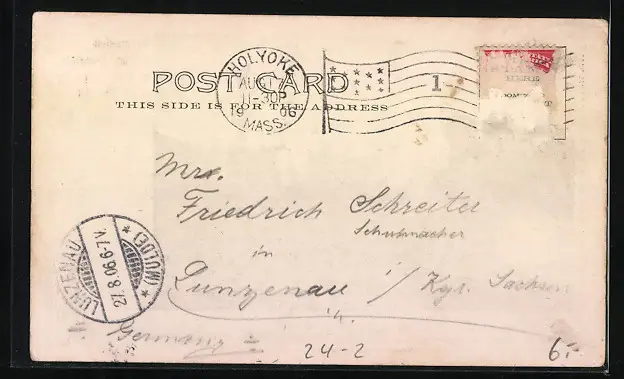 HOLYOKE
AUG 17
11-30P
1906
MASS.
1
POST CARD
THIS SIDE IS FOR THE ADDRESS
HERE
DOM
Mrs.
Friedrich Schreiter
Schuhmacher
in
Lunzenau i/ Kgr. Sachsen
Germany
LUNZENAU
27.8.06 6-7 V.
* (MULDE) *
24-2
6.-